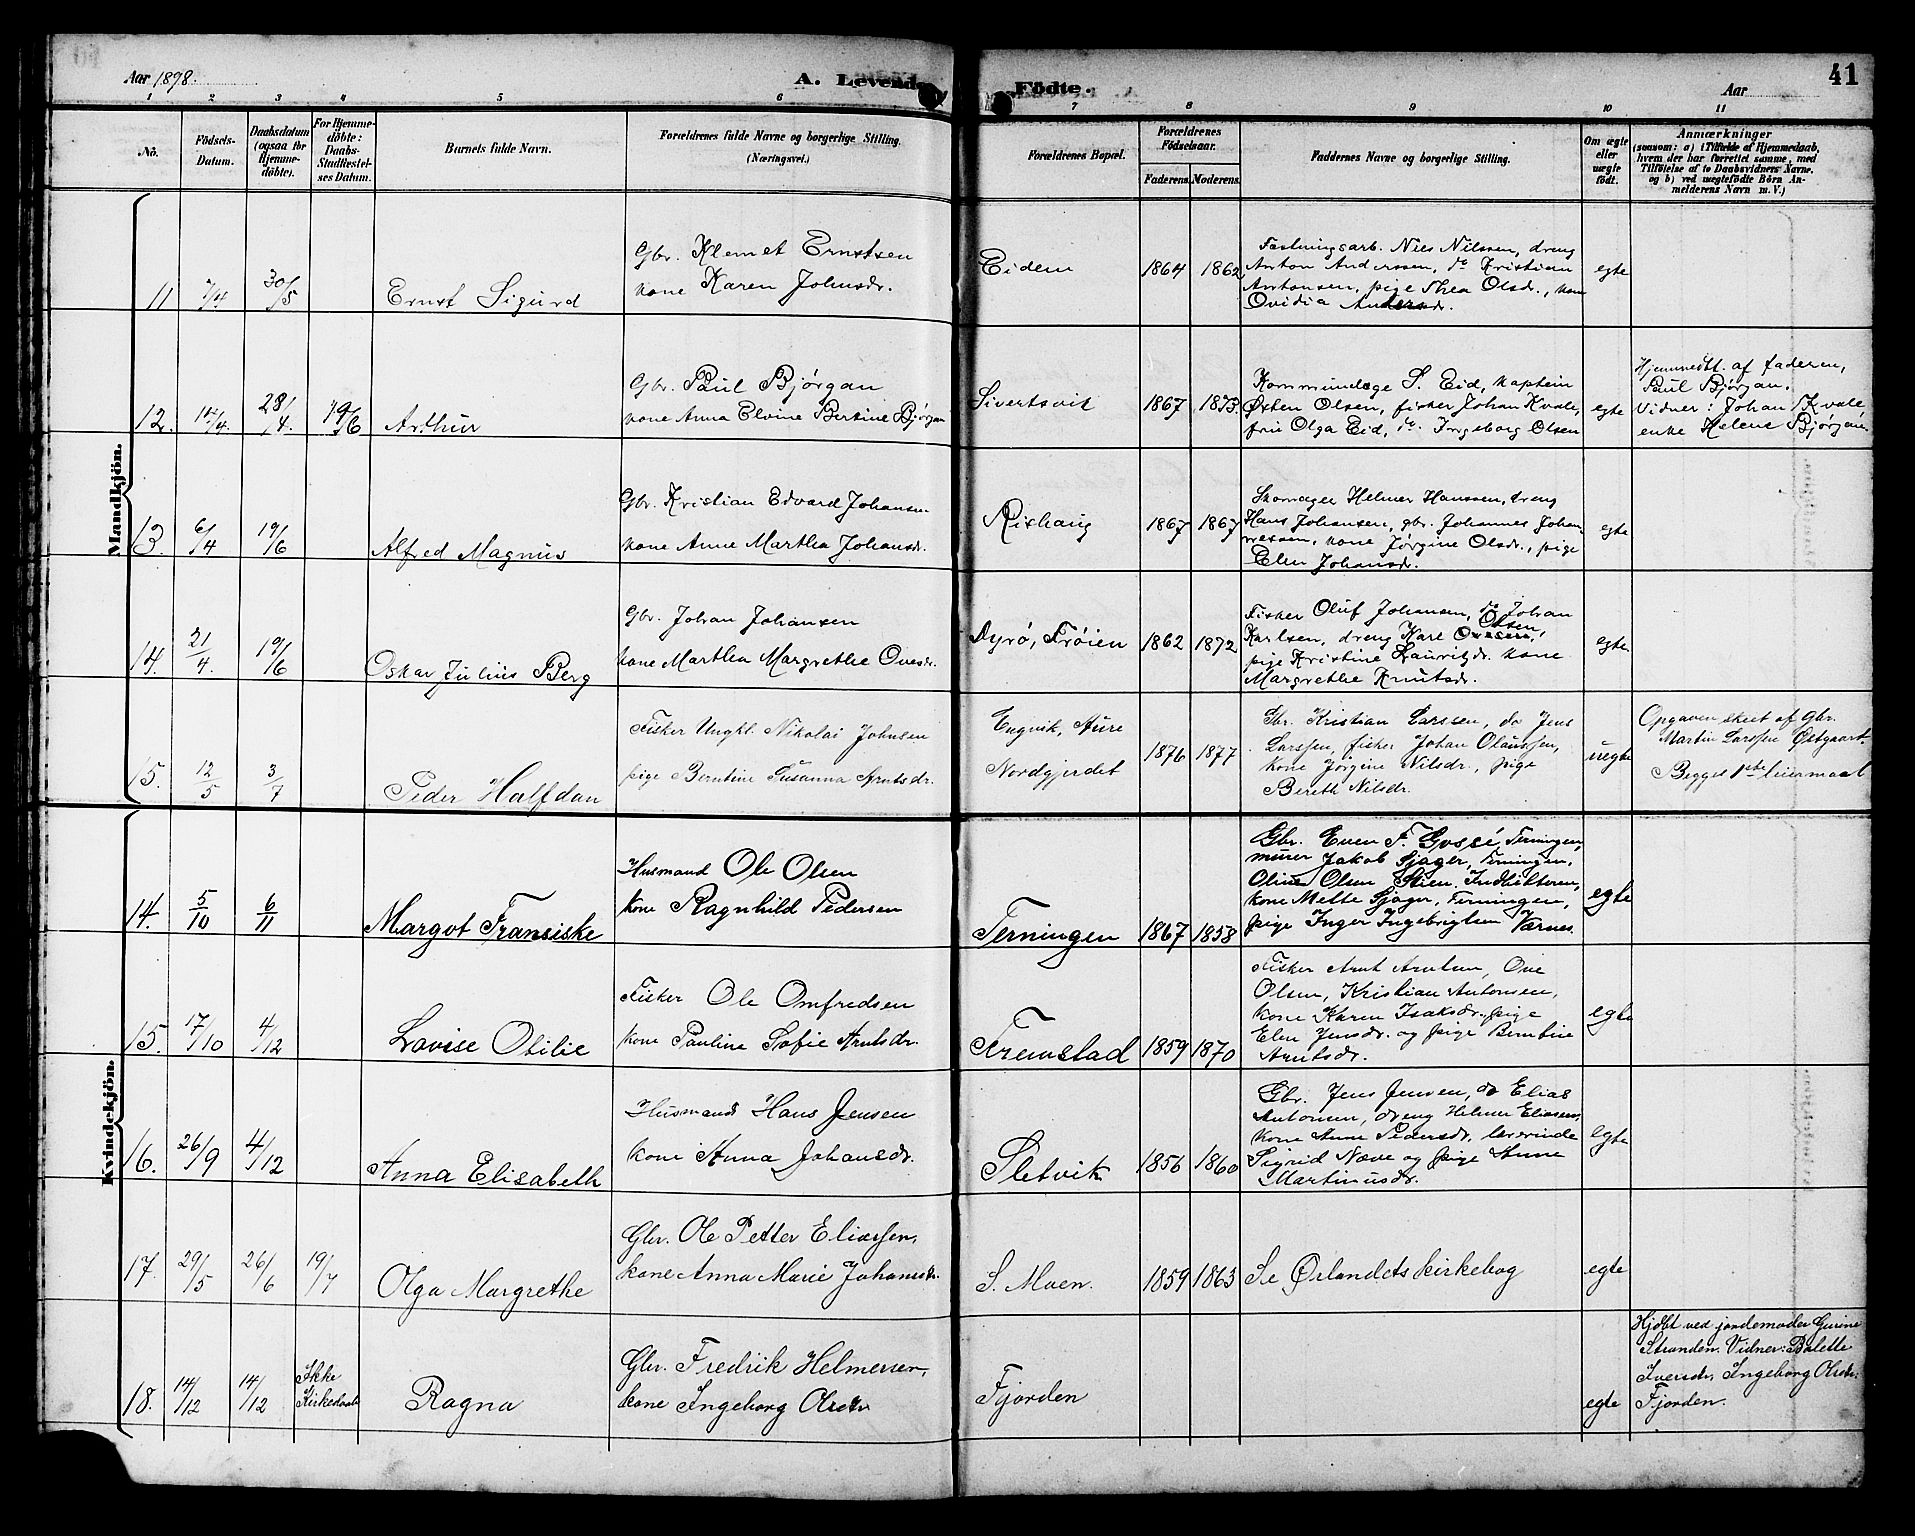 Aar 1898.
A. Levende
Födte.
Aar
41
1 2 3 4 5 6 7 8 9 10 11
No.
Födsels-Datum.
Daabsdatum (ogsaa for Hjemme-döbte).
For Hjemme-döbte: Daabs-Stadfæstel-ses Datum.
Barnets fulde Navn.
Forældrenes fulde Navne og borgerlige Stilling. (Næringsvei.)
Forældrenes Bopæl.
Forældrenes Födselsaar.
Faderens. Moderens.
Faddernes Navne og borgerlige Stilling.
Om ægte eller uægte födt.
Anmærkninger
(saasom: a) i Tilfælde af Hjemmedaab, hvem der har forrettet samme, med Tilföielse af to Daabsvidners Navne. og b) ved uægtefödte Börn Anmelderens Navn m. V.)
Mandkjön.
11 7/4 30/5 Ernst Sigurd
Gbr. Klemet Ernstsen
kone Karen Johnsdr.
Eidem 1864 1862
Fæstningsarb. Nils Nilssen, dreng
Anton Anderssen, do Kristian
Antonsen, pige Thea Olsdr., kone
Ovidia Andersdr.
egte
12. 12/4. 28/4. 19/6 Arthur
Gbr. Paul Bjørgan
kone Anna Elvine Bertine Bjørgan
Sivertsvik 1867 1873.
Kommunelæge S. Eid, kaptein
Østen Olsen, fisker Johan Kvale,
frue Olga Eid, do Ingeborg Olsen
egte
Hjemmedøbt. af faderen,
Paul Bjørgan.
Vidner: Johan Kvale,
enke Helene Bjørgan.
13. 6/4 19/6 Alfred Magnus
Gbr. Kristian Edvard Johansen
kone Anne Martha Johansdr.
Rishaug 1867 1867
Skomager Helmer Hanssen, dreng
Hans Johansen, gbr. Johannes Johan
nessen, kone Jørgine Olsdr., pige
Elen Johansdr.
egte
14. 21/4. 19/6 Oskar Julius Berg
Gbr. Johan Johansen
kone Martha Margrethe Ovesdr.
Dyrø, Frøien 1862 1872
Fisker Oluf Johansen, do Johan
Karlsen, dreng Karl Olsen,
pige Kristine Lauritzdr. kone
Margrethe Knutsdr.
egte
15. 12/5 3/7 Peder Halfdan
Fisker Ungkl. Nikolai Johnsen
pige Berntine Susanna Arntsdr.
Engvik, Aure
Nordgjerdet
1876 1877
Gbr. Kristian Larssen, do Jens
Larssen, fisker Johan Olaussen,
kone Jørgine Nilsdr., pige
Bereth Nilsdr.
uegte
Opgaven skeet af gbr.
Martin Larssen Østgaart.
Begges 1ste leiermaal
Kvindekjön.
14. 5/10 6/11 Margot Fransiske
Husmand Ole Olsen
kone Ragnhild Pedersen
Terningen 1867 1858
Gbr. Even F. Terningen,
murer Jakob Sjager, Terningen,
Oline Olsen
kone Mette Sjager, Terningen,
pige Inger Ingebrigtsen Værnes.
egte
15. 17/10 4/12 Lovise Otilie
Fisker Ole Omfredsen
kone Pauline Sofie Arntsdr.
Fremstad 1859 1870
Fisker Arnt Arntsen, Ove
Olsen, Kristian Antonsen,
kone Karen Isaksdr., pige
Elen Jensdr. og pige Berntine
Arntsdr.
egte
16. 26/9 4/12 Anna Elisabeth
Husmand Hans Jensen
kone Anna Johansdr.
Sletvik 1856 1860
Gbr. Jens Jensen, do Elias
Antonsen, dreng Helmer Eliassen,
kone Anne Pedersdr. lærerinde
Sigrid Næve og pige Anne
Martinusdr.
egte
17. 29/5 26/6 19/7 Olga Margrethe
Gbr. Ole Petter Eliassen,
kone Anna Marie Johansdr.
S. Moen. 1859 1863 Se Ørlandets kirkebog egte
18. 14/12 14/12 Ikke
Kirkedaab
Ragna
Gbr. Fredrik Helmersen,
kone Ingeborg Olsdr
Fjorden
egte
Hjdbt ved jordemoder Gurine
Stranden. Vidner: Bolette
Iversdr, Ingeborg Olsdr.
Fjorden.